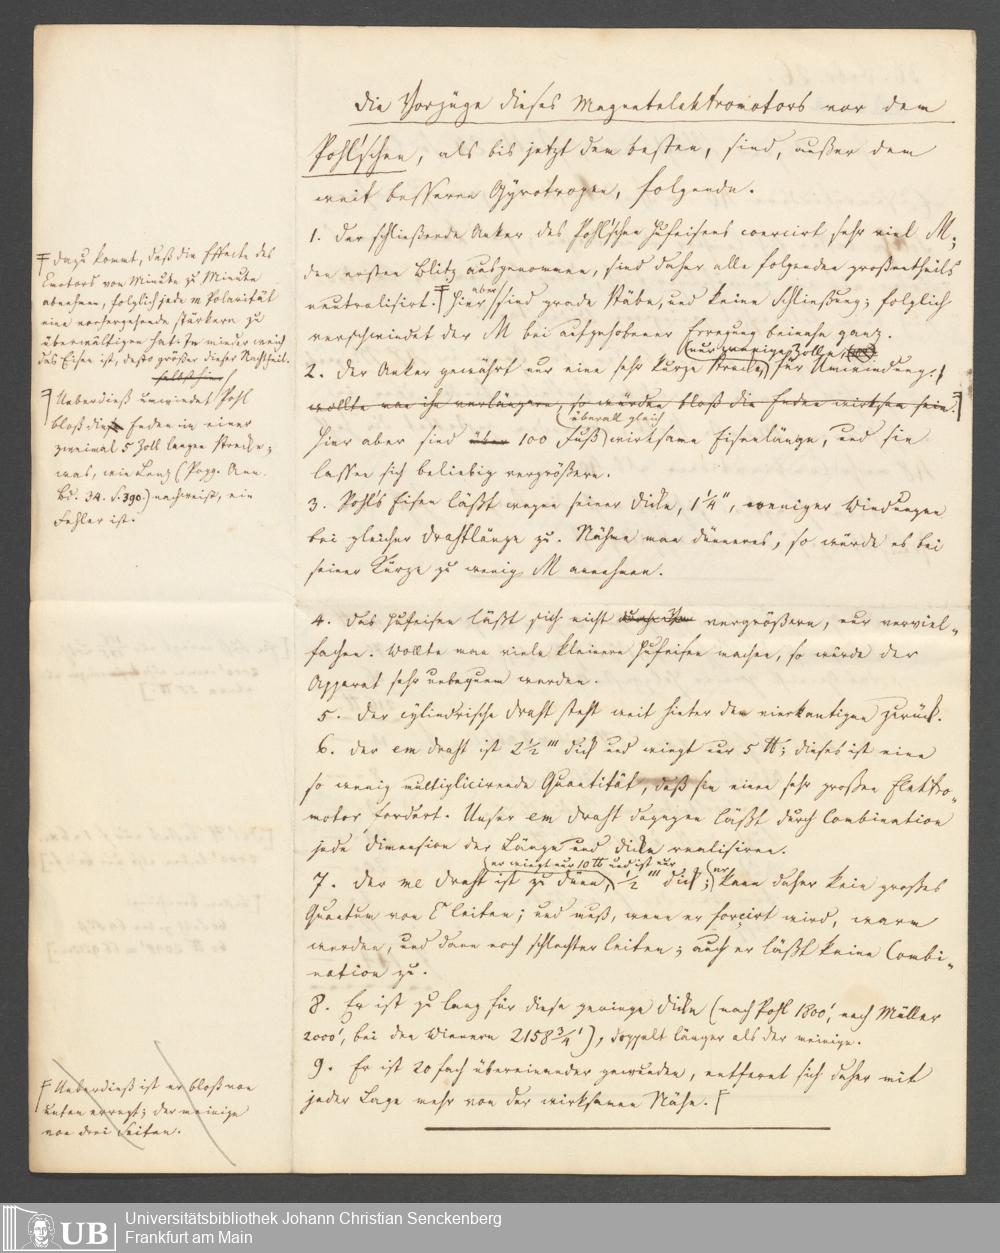 Die Vorzüge dieses Magnetelektromotors vor dem
Pohl'schen, als bis jetzt dem besten, sind, außer dem
weit besseren Gyrotropen, folgende.
1. Der schließende Anker des Pohl'schen Hufeisens coercirt sehr viel M;
den ersten Blitz ausgenommen, sind daher alle folgenden großentheils
neutralisirt. Hier aber sind grade Stäbe, und keine Schließung; folglich
verschwindet der M bei aufgehobener Erregung beinahe ganz.
2. Der Anker gewährt nur eine sehr kurze Strecke, (nur wenige Zolle) für Umwindung.
wollte man ihn verlängern, so würden bloß die Enden wirksam sein.
Hier aber sind über 100 Fuß überall gleich wirksame Eisenlänge, und sie
lassen sich beliebig vergrößern.
3. Pohl's Eisen läßt wegen seiner Dicke, 1¼", weniger Windungen
bei gleicher Drahtlänge zu. Nähme man dünneres, so würde es bei
seiner Kürze zu wenig M annehmen.
4. Das Hufeisen läßt sich nicht vergrößern, nur verviel-
fachen. Wollte man viele kleinere Hufeisen machen, so würde der
Apparat sehr unbequem werden.
5. Der cylindrische Draht steht weit hinter dem vierkantigen zurück.
6. Der em Draht ist 2½''' dick und wiegt nur 5 ℔; dieses ist eine
so wenig multiplicirende Quantität, daß sie einen sehr großen Elektro-
motor fordert. Unser em Draht dagegen läßt durch Combination
jede Dimension der Länge und Dicke realisiren.
7. Der me Draht ist zu dünn, er wiegt nur 10 ℔ und ist nur ½''' dick; er kann daher kein großes
Quantum von E leiten; und muß, wenn er forçirt wird, warm
werden, und dann noch schlechter leiten; auch er läßt keine Combi-
nation zu.
8. Er ist zu lang für diese geringe Dicke (nach Pohl 1800', nach Müller
2000', bei den Wienern 2158¾'), doppelt länger als der meinige.
9. Er ist 20fach übereinander gewunden, entfernt sich daher mit
jeder Lage mehr von der wirksamen Nähe.
Dazu kommt, daß die Effecte des
Emotors von Minute zu Minute
abnehmen, folglich jede m Polarität
eine vorhergehende stärkere zu
überwältigen hat. Je minder weich
das Eisen ist, desto größer dieser Nachtheil.
Ueberdieß bewindet Pohl
bloß die Enden in einer
zweimal 5 Zoll langen Strecke;
was, wie Lenz (Pogg. Ann.
Bd. 34. S. 390.) nachweist, ein
Fehler ist.
Ueberdieß ist er bloß von
unten erregt; der meinige
von drei Seiten.
UB
Universitätsbibliothek Johann Christian Senckenberg
Frankfurt am Main